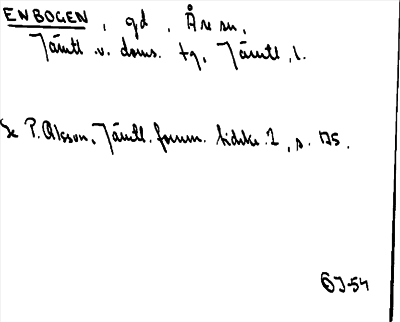 ENBOGEN, gd, Åre sn,
Jämtl. v. doms. tg, Jämtl. l.
Se P. Olsson, Jämtl. fornm. tidskr. 1, s. 175.
ÖJ-54